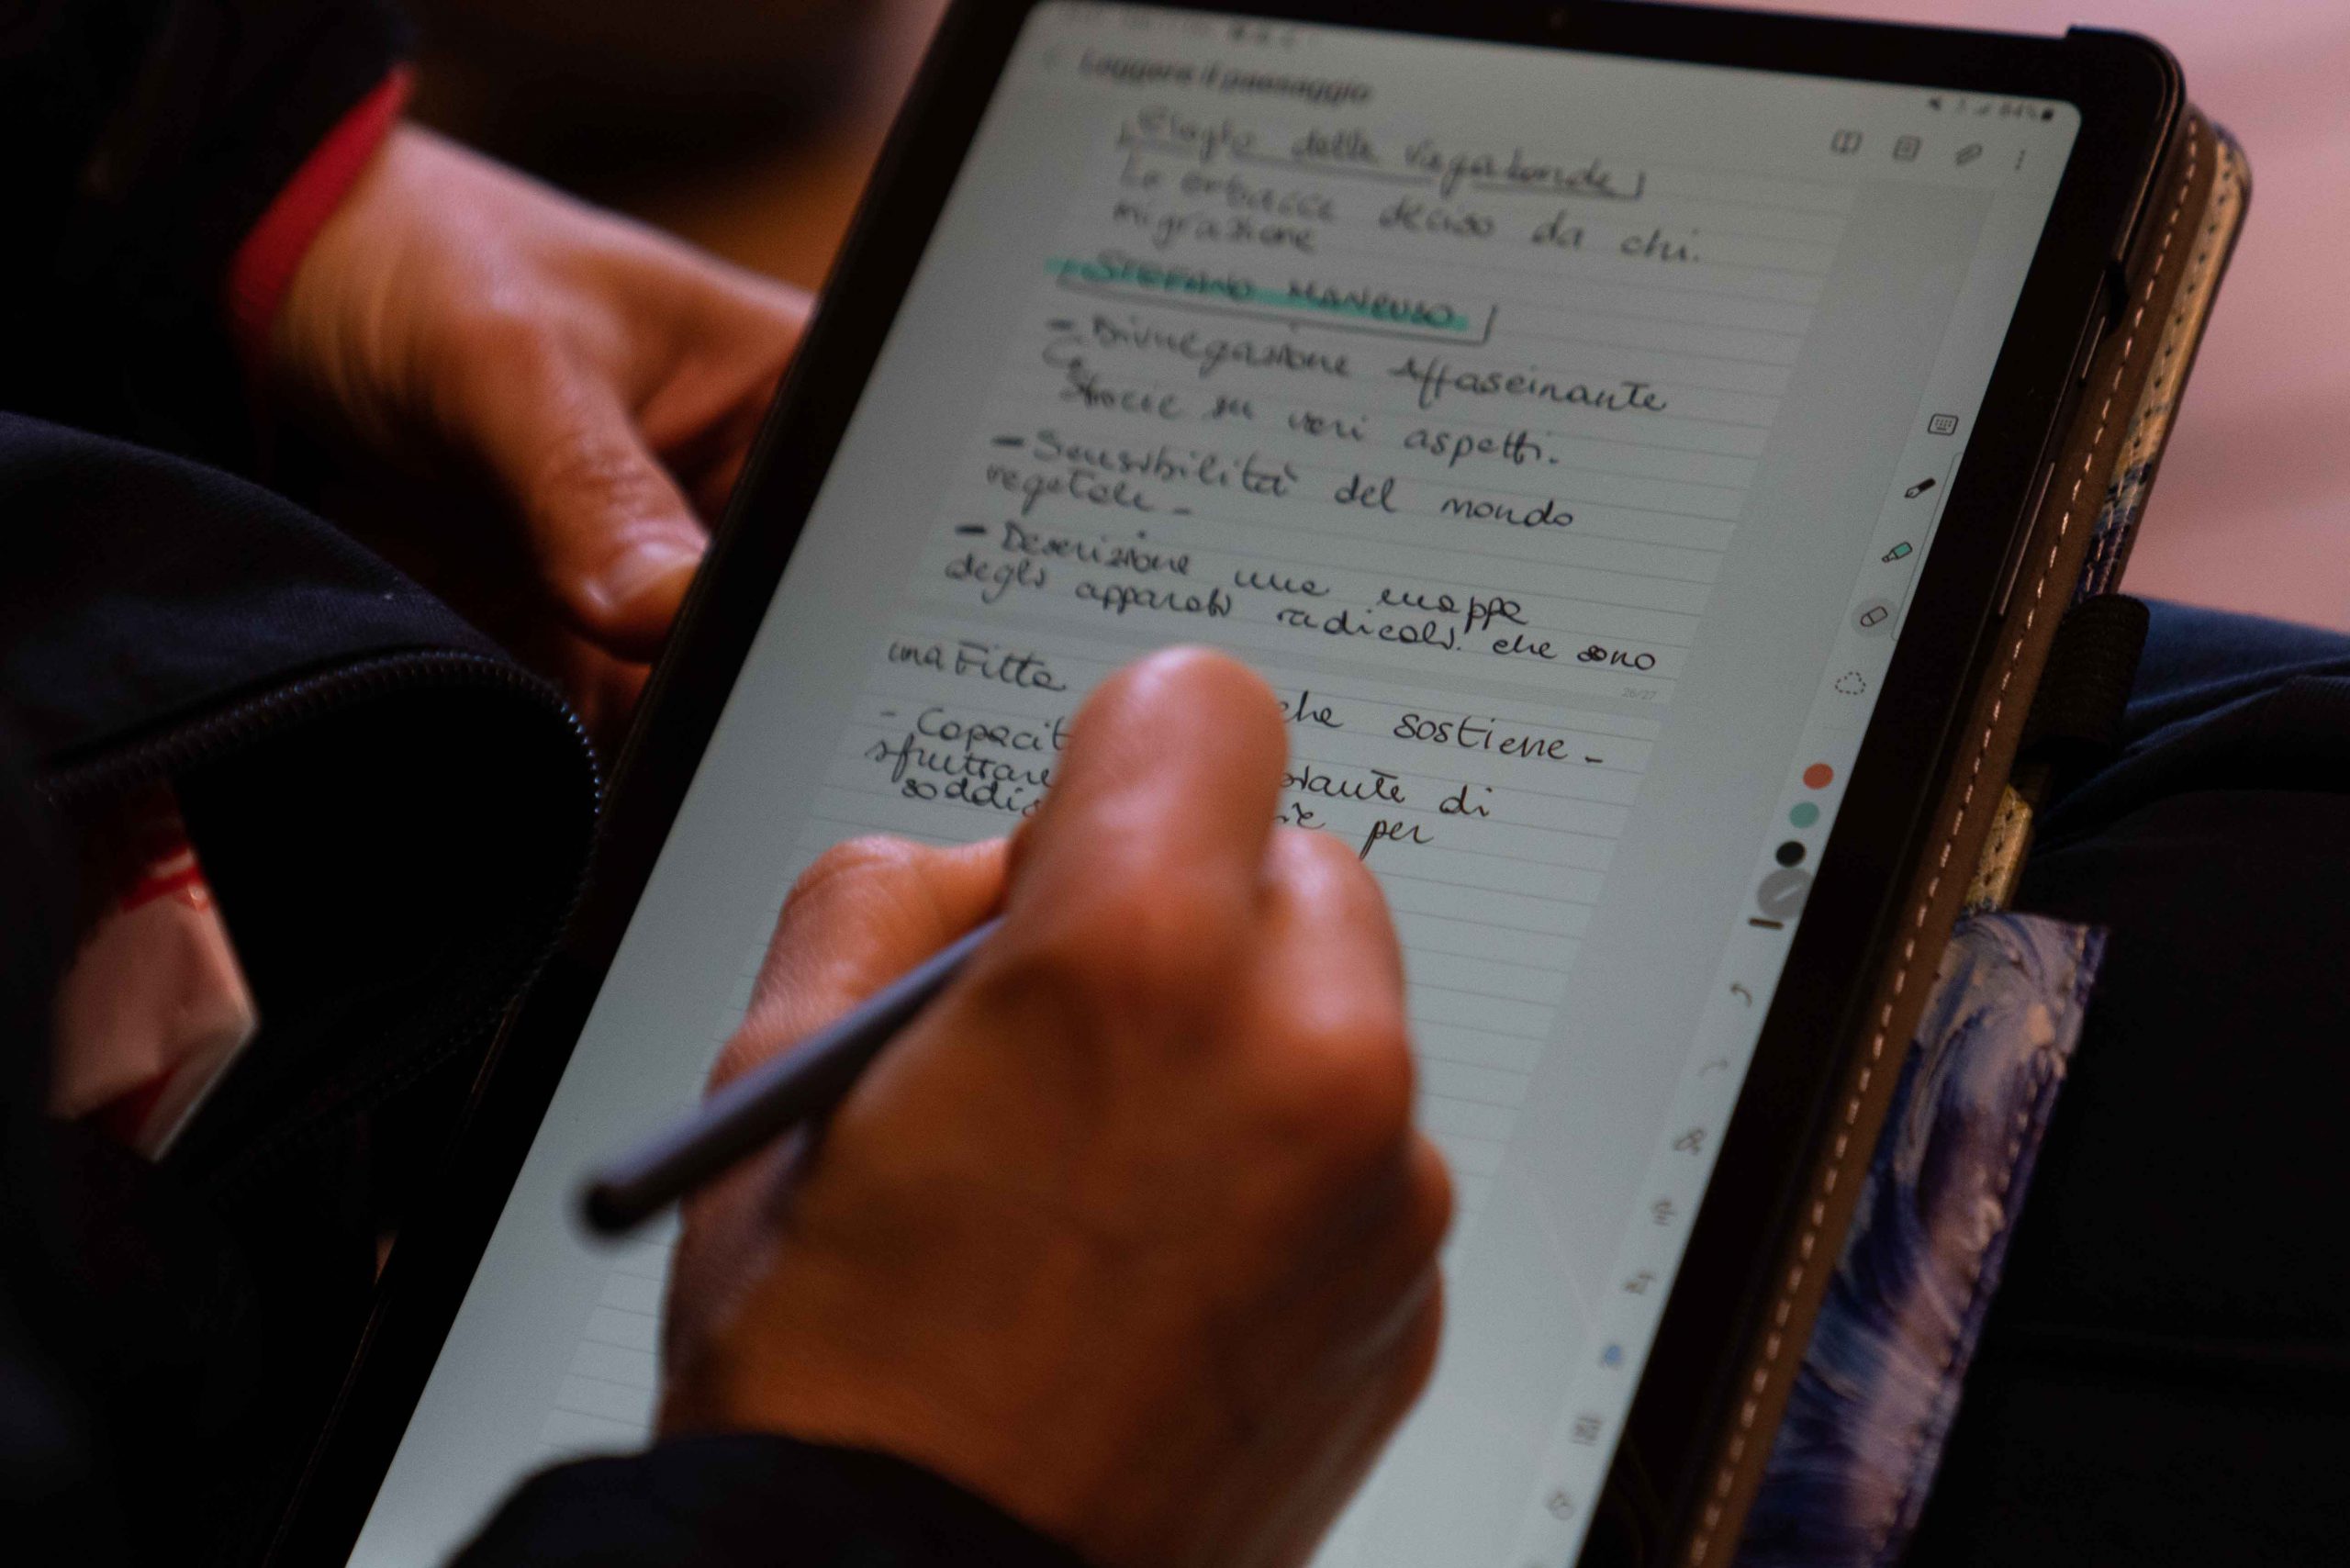 Leggere il paesaggio
84%
elogio delle vagabonde
Le erbacce deciso da chi.
migrazione
STEFANO MANCUSO
- Divulgazione affascinante
su vari aspetti.
- Sensibilità del mondo
vegetale -
- Descrizione una mappa
degli apparati radicali. che sono
26/27
una Fitta che sostiene -
- Capacit
sfruttare di
soddis per